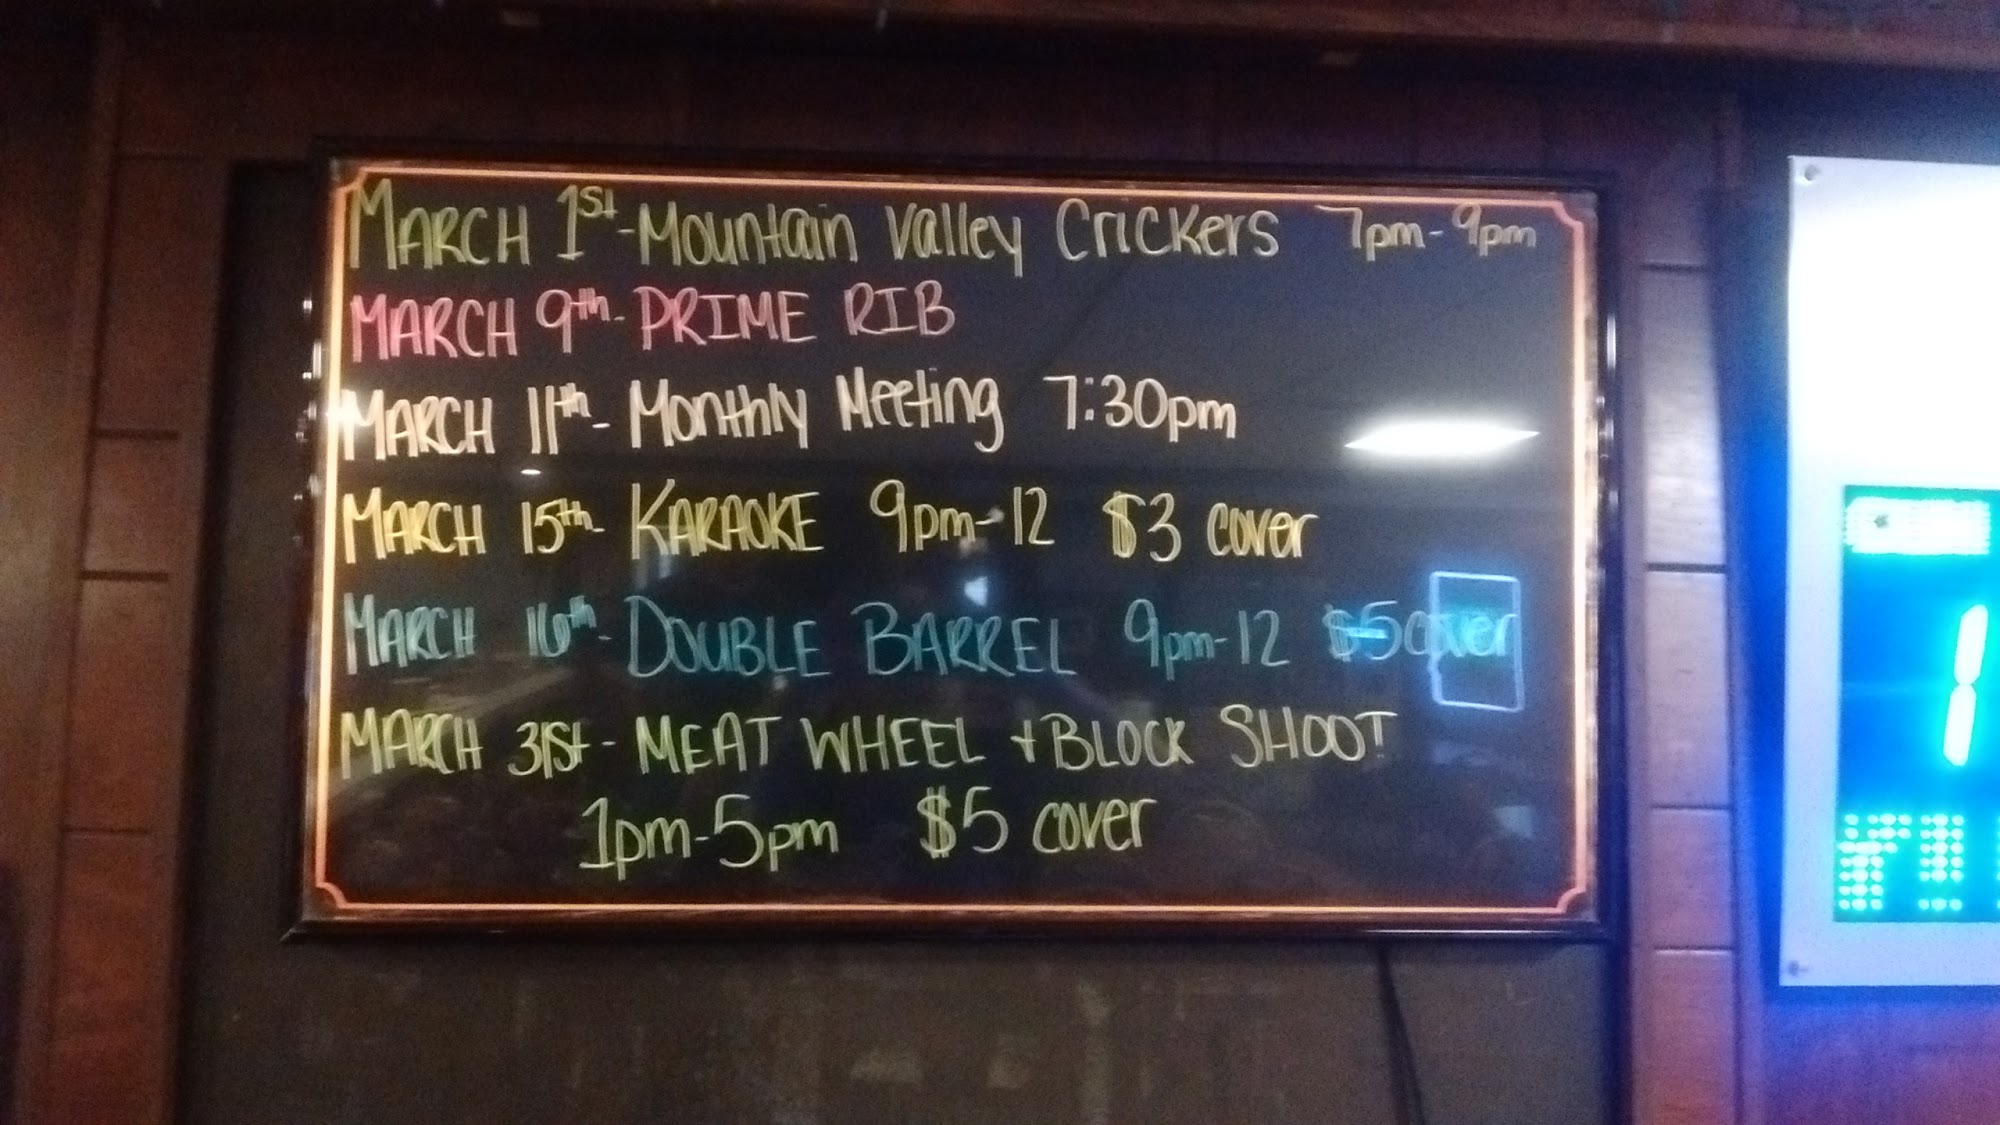 MARCH 1st - Mountain Valley Crickers 7pm - 9pm
MARCH 9th - PRIME RIB
MARCH 11th - Monthly Meeting 7:30pm
MARCH 15th - KARAOKE 9pm - 12 $3 cover
MARCH 16th - DOUBLE BARREL 9pm - 12 $5 cover
MARCH 31st - MEAT WHEEL + BLOCK SHOOT
1pm - 5pm $5 cover